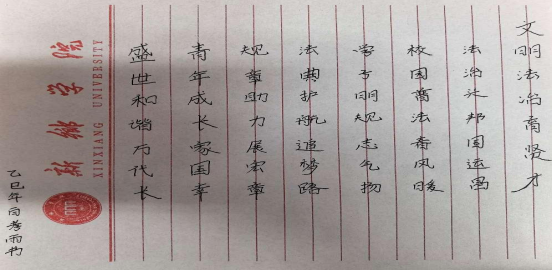 文明法治育贤才
法治之邦国运昌
校园法春风暖
学子明规志气扬
法典护航追梦路
规章助力展宏章
青年成长家国幸
盛世和谐万代长
新鄉学院
XINXIANG UNIVERSITY
乙巳年雨书